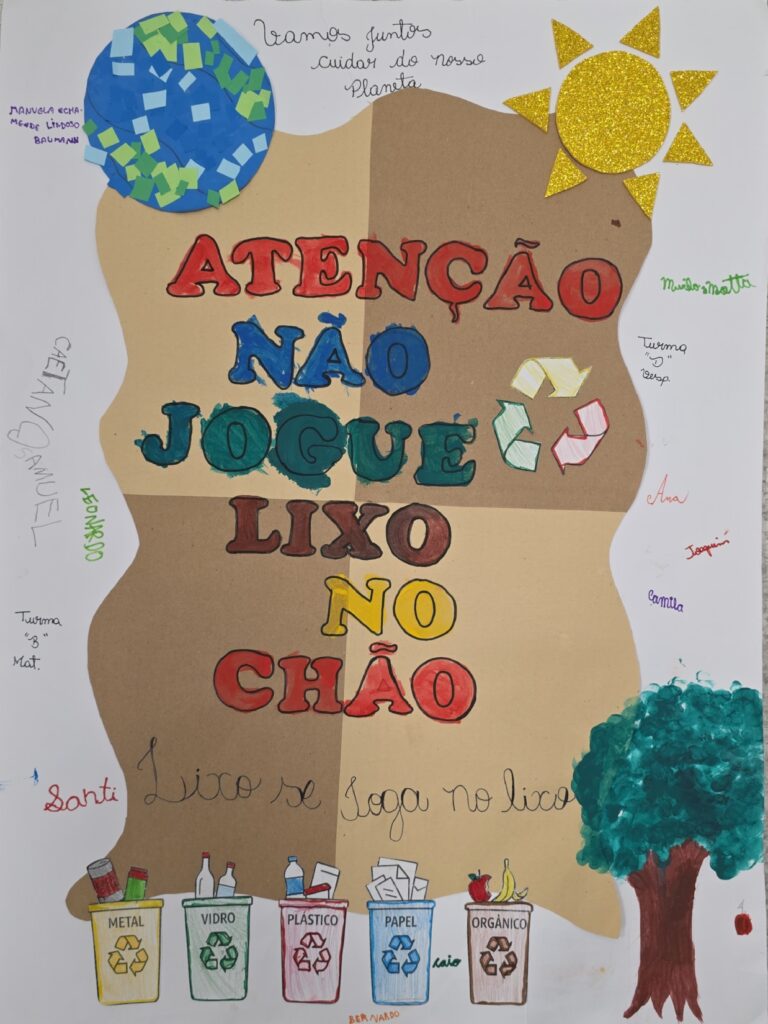 Vamos juntos
cuidar do nosso
Planeta
MANUELA ECHA-
MENDE LINDOSO
BAUMANN
ATENÇÃO
NÃO
JOGUE
LIXO
NO
CHÃO
Lixo se Joga no lixo
Turma
"D"
Vesp.
Ana
Joaquim
Camila
CAETANO
SAMUEL
LEONARDO
Turma
"B"
Mat.
Santi
METAL
VIDRO
PLÁSTICO
PAPEL
ORGÂNICO
caio
BERNARDO